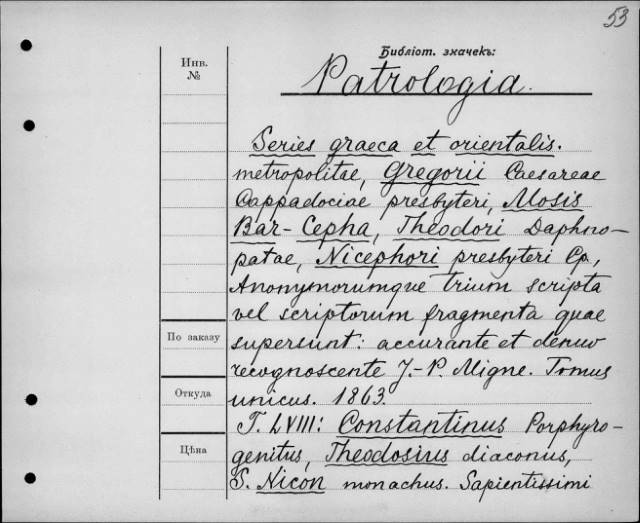 53
Библіот. значекъ:
Инв.
№
Patrologia.
Series graeca et orientalis.
metropolitae, Gregorii Caesareae
Cappadociae presbyteri, Mosis
Bar-Cepha, Theodori Daphno-
patae, Nicephori presbyteri Cp.,
Anonymorumque trium scripta
vel scriptorum fragmenta quae
supersunt: accurante et denuo
recognoscente J.-P. Migne. Tomus
unicus. 1863.
T. LVIII: Constantinus Porphyro-
genitus, Theodosius diaconus,
S. Nicon monachus. Sapientissimi
По заказу
Откуда
Цѣна